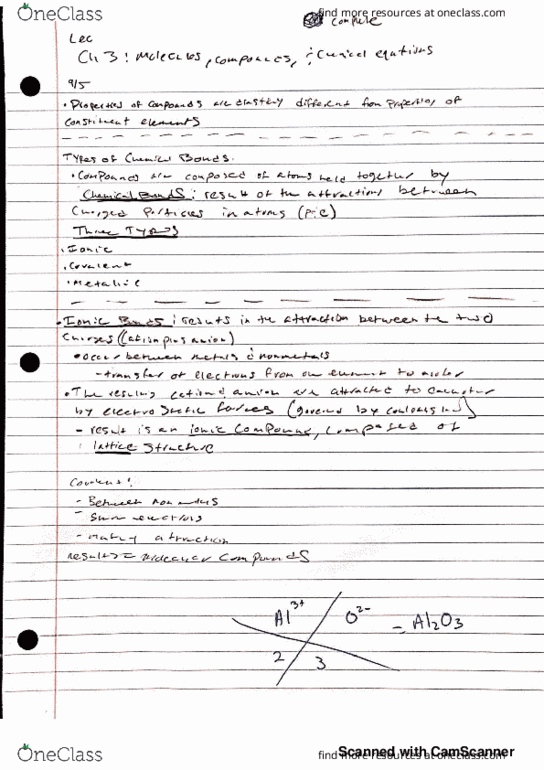 OneClass
find more resources at oneclass.com
complete
Lec
Ch 3: Molecules, compounds, & Chemical equations
9/5
• Properties of compounds are drastically different from properties of
constituent elements
Types of Chemical Bonds.
• Compounds are composed of atoms held together by
Chemical Bonds: result of the attractions between
Charged Particles in atoms (p+e)
Three Types
• Ionic
• Covalent
• Metallic
• Ionic Bonds: results in the attraction between the two
Charges (cation plus anion)
• occur between metals & nonmetals
- transfer of electrons from one element to another
• The resulting cation & anion are attracted to
by electrostatic forces (governed by coulombs law)
- result is an ionic compound, composed of
lattice structure
Covalent:
- Between non metals
- electrons
- attraction
results = molecular compounds
Al³⁺ O²⁻ = Al₂O₃
2 3
OneClass
find more resources at oneclass.com
Scanned with CamScanner